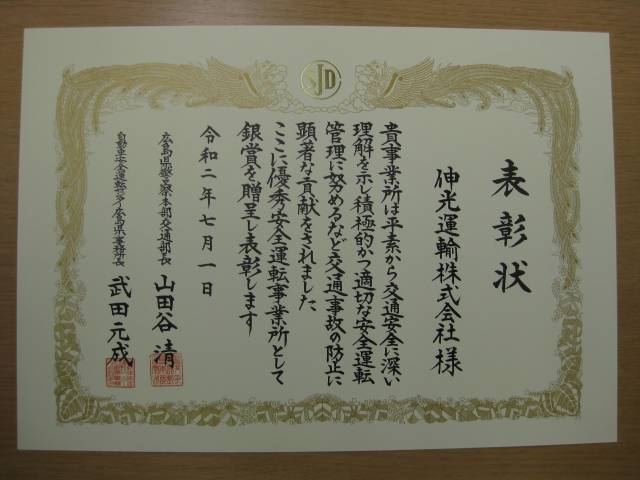 SJD
表彰状
伸光運輸株式会社様
貴事業所は平素から交通安全に深い
理解を示し積極的かつ適切な安全運転
管理に努めるなど交通事故の防止に
顕著な貢献をされました
ここに優秀安全運転事業所として
銀賞を贈呈し表彰します
令和二年七月一日
広島県警察本部交通部長 山田谷清
自動車安全運転センター広島県事務所長 武田元成